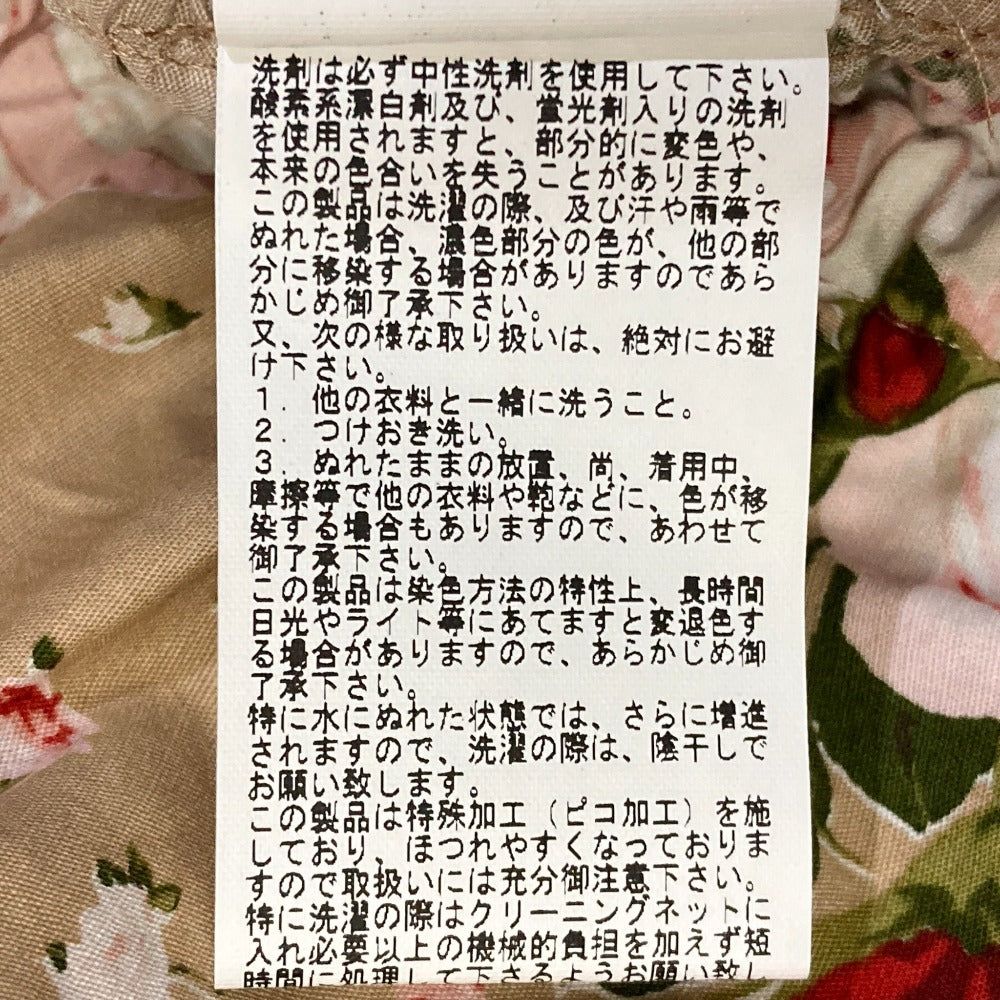 洗剤は必ず中性洗剤を使用して下さい。
酸素系漂白剤及び、蛍光剤入りの洗剤
を使用されますと、部分的に変色や、
本来の色合いを失うことがあります。
この製品は洗濯の際、及び汗や雨等で
ぬれた場合、濃色部分の色が、他の部
分に移染する場合がありますのであら
かじめ御了承下さい。
又、次の様な取り扱いは、絶対にお避
け下さい。
1. 他の衣料と一緒に洗うこと。
2. つけおき洗い。
3. ぬれたままの放置、尚、着用中、
摩擦等で他の衣料や鞄などに、色が移
染する場合もありますので、あわせて
御了承下さい。
この製品は染色方法の特性上、長時間
日光やライト等にあてますと変退色す
る場合がありますので、あらかじめ御
了承下さい。
特に水にぬれた状態では、さらに増進
されますので、洗濯の際は、陰干しで
お願い致します。
この製品は特殊加工（ピコ加工）を施
しており、ほつれやすくなっておりま
すので取扱いには充分御注意下さい。
特に洗濯の際はクリーニングネットに
入れ必要以上の機械的負担を加えず短
時間に処理して下さるようお願い致し